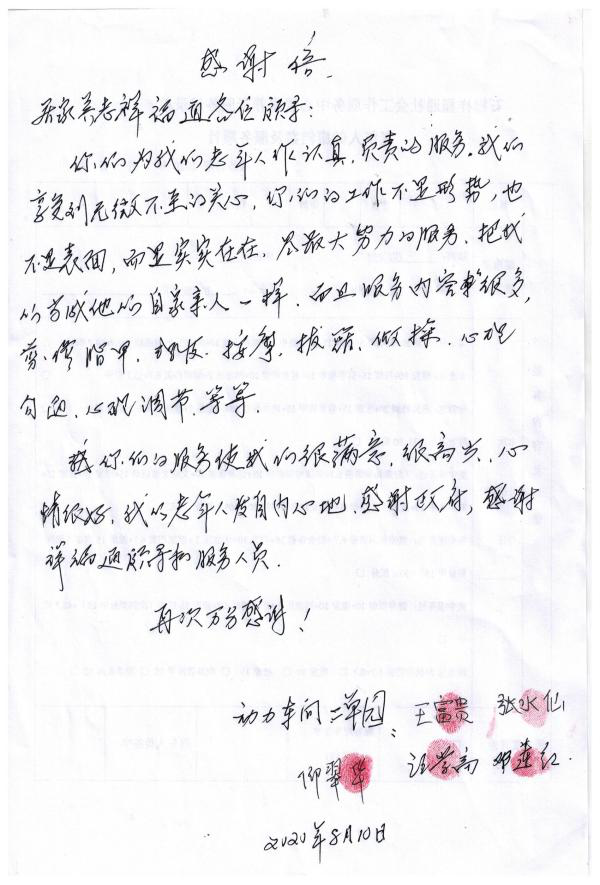 感谢信
居家养老祥福通各位领导：
你们为我们老年人作认真，负责的服务。我们
享受到无微不至的关心，你们的工作不是形势，也
不是表面，而是实实在在，尽最大努力的服务，把我
们当成他们自家亲人一样，而且服务内容那很多，
剪修脂甲，按摩，拔罐，做操，心理
勾通，心理调节等等
你们的服务使我们很满意，很高兴，心
情很好，我们老年人发自内心地，感谢政府，感谢
祥福通领导和服务人员。
再次万分感谢！
动力车间二单园：王富贵 张水仙
仰翠华 汪学高 邓莲红
2020年8月10日